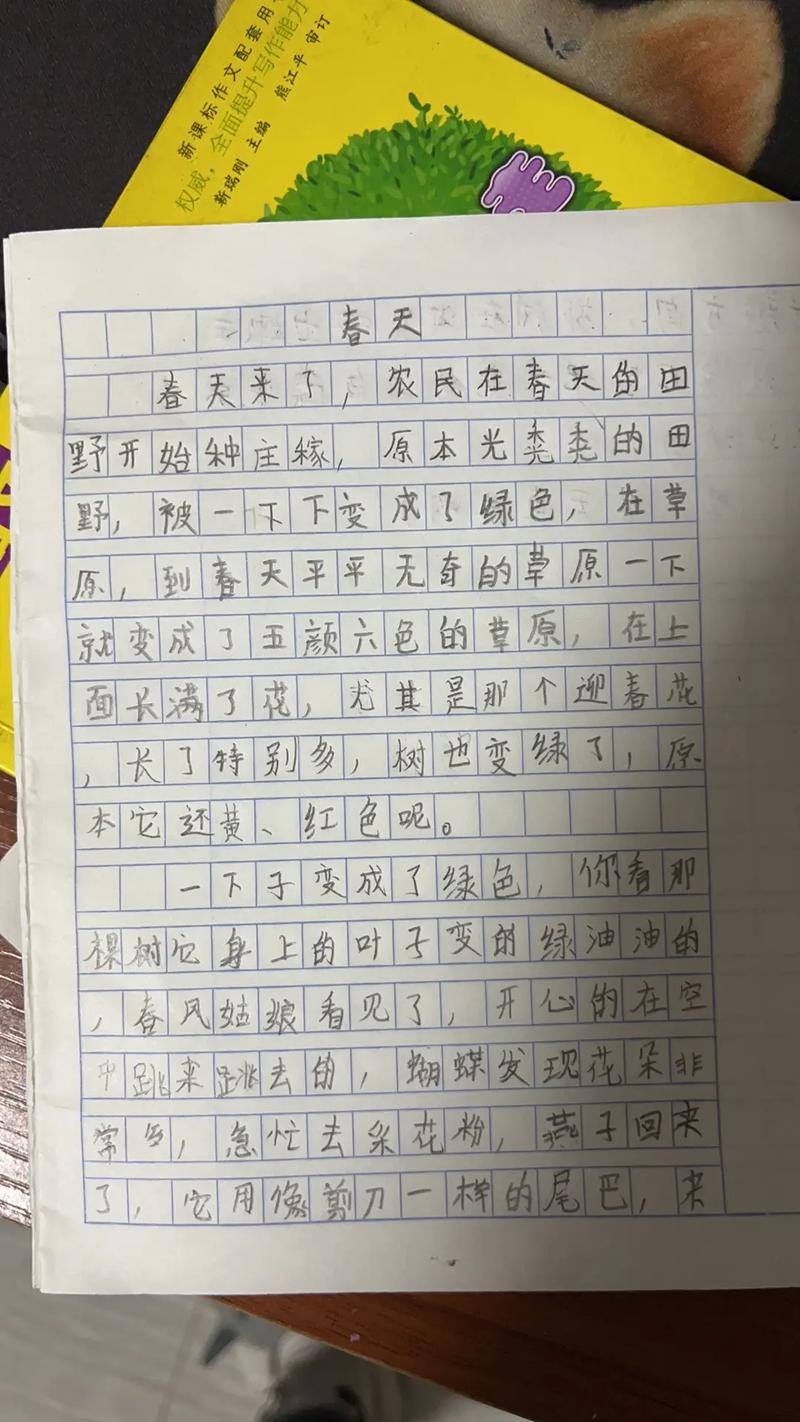 新课标作文配套用
权威，全面提升写作能力
靳瑞刚 主编 熊江平 审订
春天
春天来了，农民在春天的田
野开始种庄稼，原本光秃秃的田
野，被一下下变成了绿色，在草
原，到春天平平无奇的草原一下
就变成了五颜六色的草原，在上
面长满了花，尤其是那个迎春花
，长了特别多，树也变绿了，原
本它还黄、红色呢。
一下子变成了绿色，你看那
棵树它身上的叶子变的绿油油的
，春风姑娘看见了，开心的在空
中跳来跳去的，蝴蝶发现花朵非
常多，急忙去采花粉，燕子回来
了，它用像剪刀一样的尾巴，来